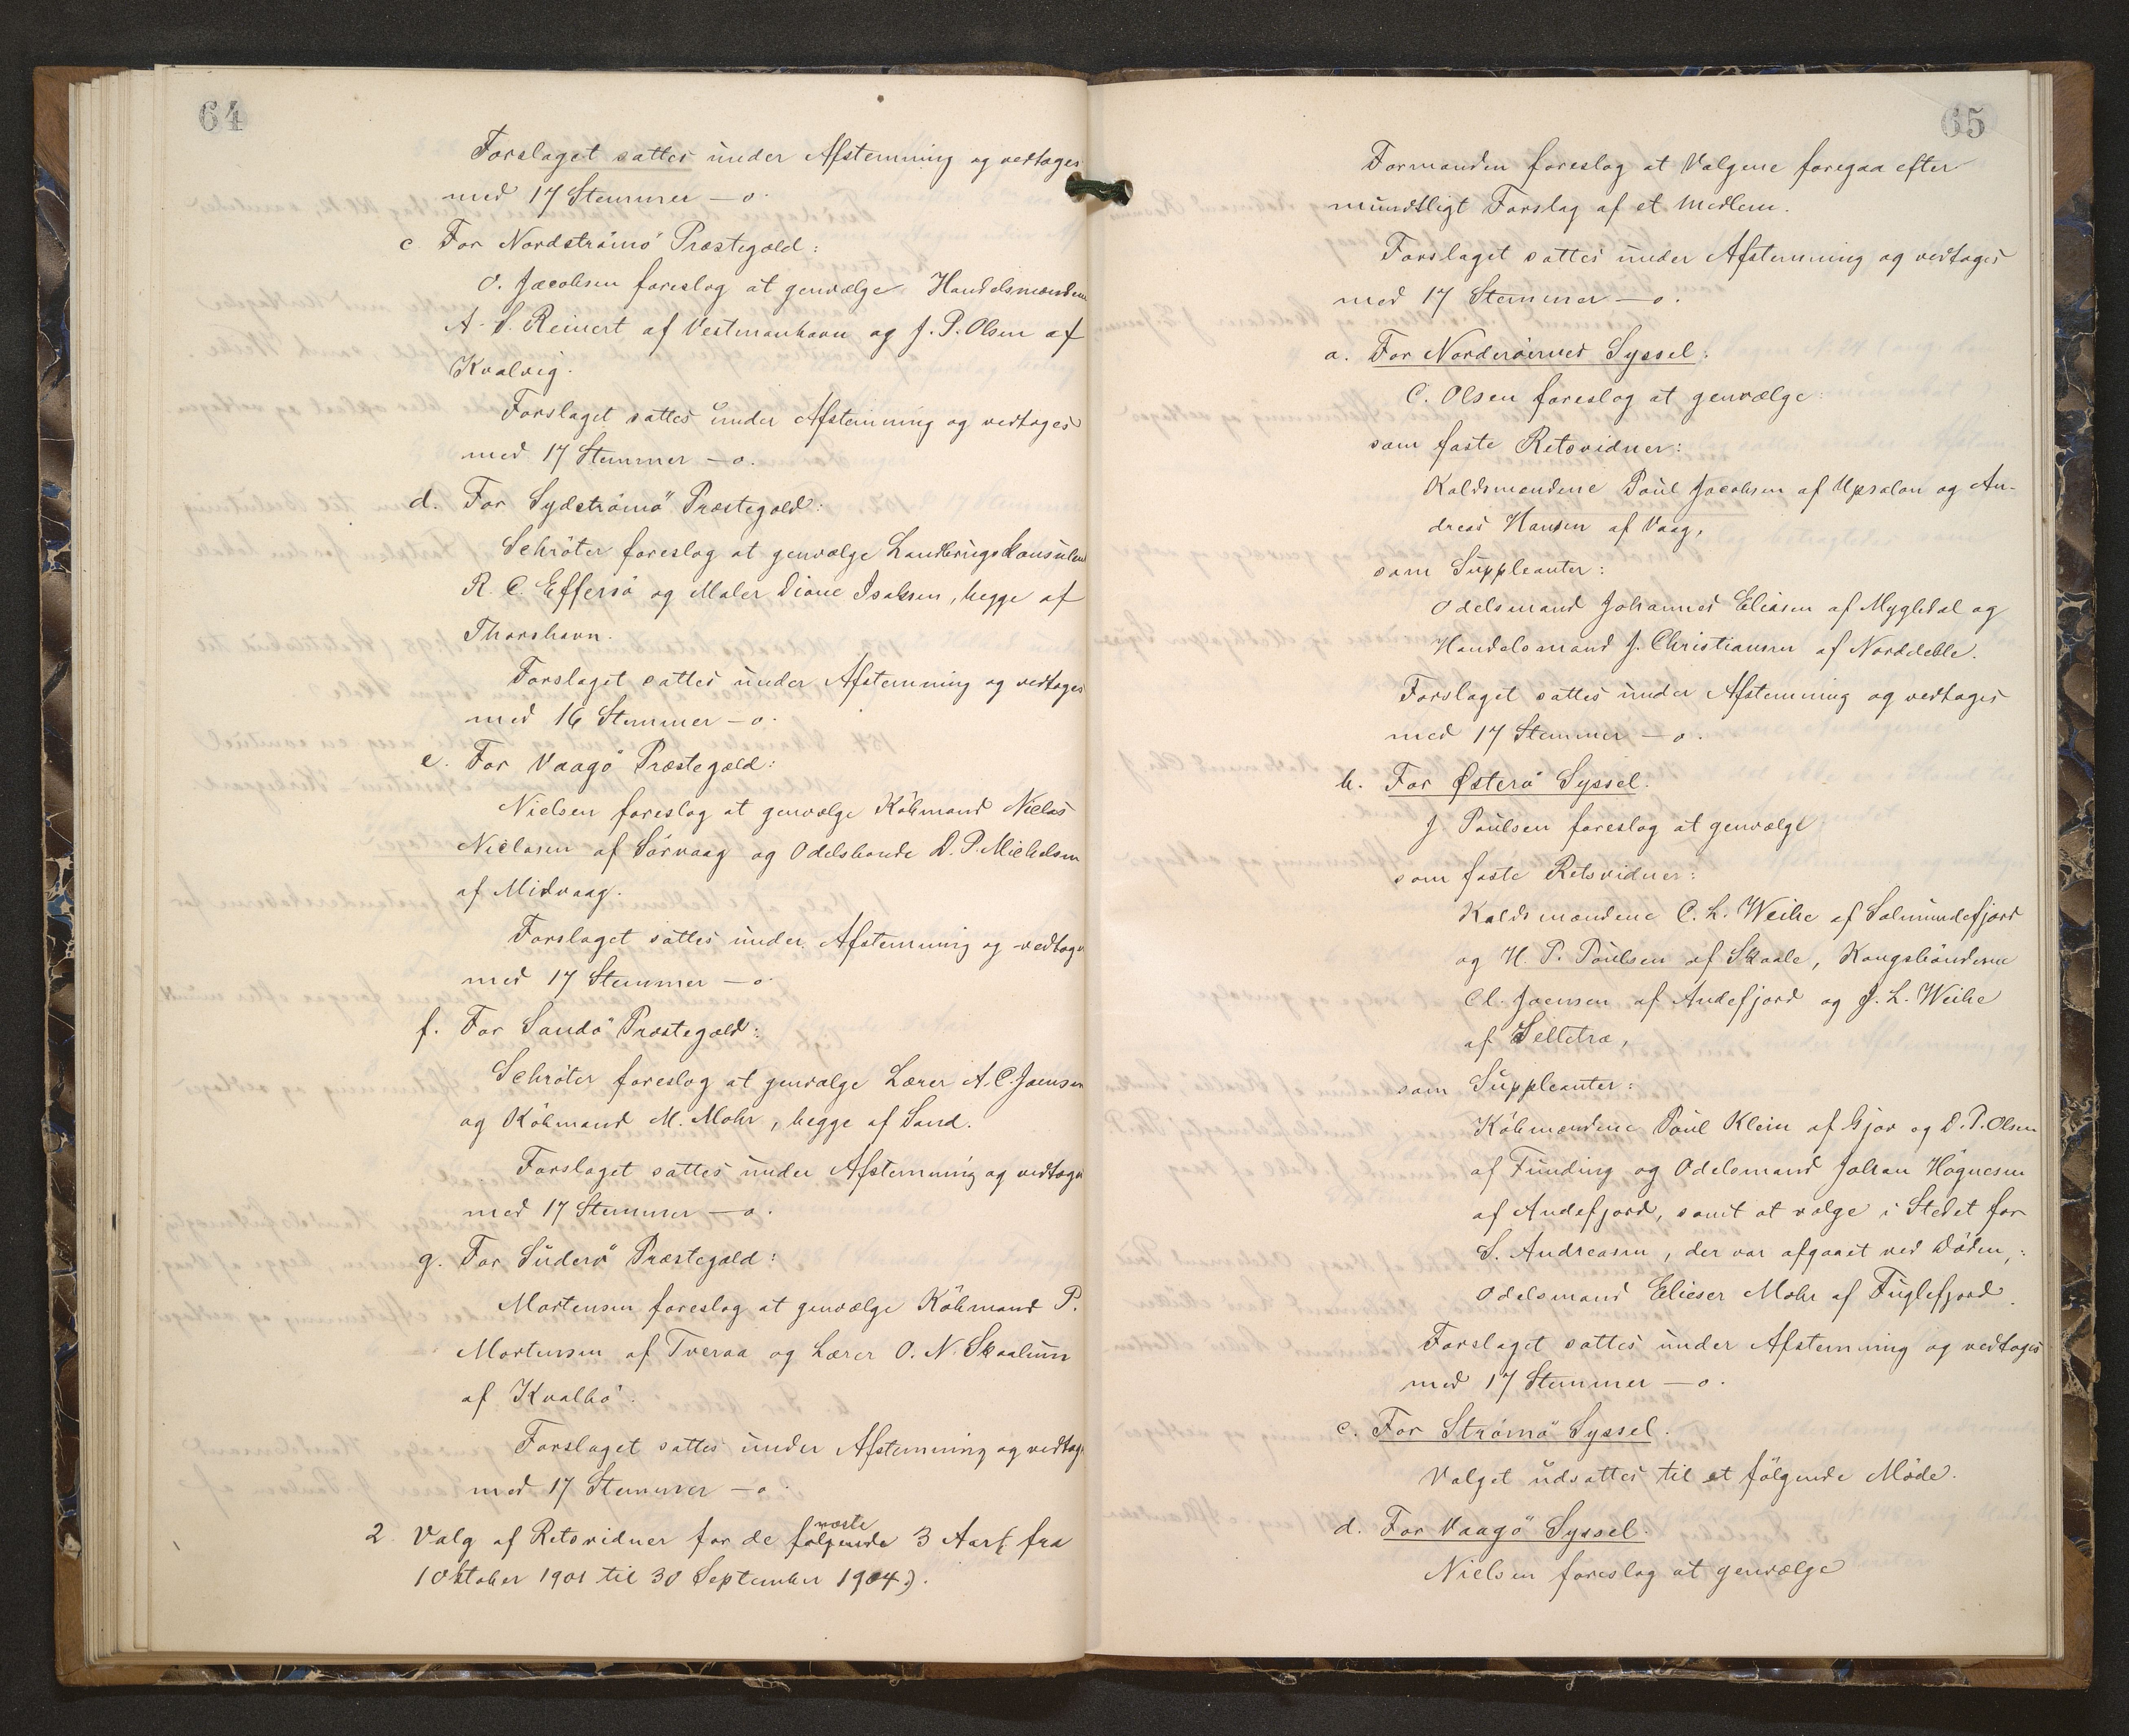 64
Forslaget sattes under Afstemning og vedtoges
med 17 Stemmer – o.
c. For Nordströmö Præstegæld:
O. Jacobsen foreslog at genvælge Handelsmændene
A. S. Reinert af Vestmanhavn og J. P. Olsen af
Kvalvig.
Forslaget sattes under Afstemning og vedtoges
med 17 Stemmer – o.
d. For Sydströmö Præstegæld:
Schröter foreslog at genvælge Landbrugskonsulent
R. C. Effersö og Maler Dione Isaksen, begge af
Thorshavn.
Forslaget sattes under Afstemning og vedtoges
med 16 Stemmer – o.
e. For Vaagö Præstegæld:
Nielsen foreslog at genvælge Köbmand Niclas
Niclasen af Sörvaag og Odelsbonde D. P. Michelsen
af Midvaag.
Forslaget sattes under Afstemning og vedtoges
med 17 Stemmer – o.
f. For Sandö Præstegæld:
Schröter foreslog at genvælge Lærer A. C. Joensen
og Köbmand M. Mohr, begge af Sand.
Forslaget sattes under Afstemning og vedtoges
med 17 Stemmer – o.
g. For Suderö Præstegæld:
Mortensen foreslog at genvælge Köbmand P.
Mortensen af Tveraa og Lærer O. N. Skaalum
af Kvalbö.
Forslaget sattes under Afstemning og vedtoges
med 17 Stemmer – o.
næste
2. Valg af Retsvidner for de følgende 3 Aar (: fra
1 Oktober 1901 til 30 September 1904 :).
65
Formanden foreslog at Valgene foregaa efter
mundtligt Forslag af et Medlem.
Forslaget sattes under Afstemning og vedtoges
med 17 Stemmer – o.
a. For Norderöernes Syssel:
C. Olsen foreslog at genvælge:
som faste Retsvidner:
Koldsmændene Poul Jacobsen af Upsalon og An-
dreas Hansen af Vaag,
som Suppleanter:
Odelsmand Johannes Eliasen af Mygledal og
Handelsmand J. Christiansen af Norddeble.
Forslaget sattes under Afstemning og vedtoges
med 17 Stemmer – o.
b. For Østerö Syssel.
J. Poulsen foreslog at genvælge
som faste Retsvidner:
Koldsmændene C. L. Weihe af Solmundefjord
og H. P. Poulsen af Skaale, Kongsbönderne
Cl. Joensen af Andefjord og J. L. Weihe
af Selletra,
som Suppleanter:
Köbmændene Poul Klein af Gjov og D. P. Olsen
af Funding og Odelsmand Johan Högnesen
af Andefjord, samt at vælge i Stedet for
S. Andreasen, der var afgaaet ved Döden,:
Odelsmand Elieser Mohr af Fuglefjord.
Forslaget sattes under Afstemning og vedtoges
med 17 Stemmer – o.
c. For Strömö Syssel.
Valget udsattes til et fölgende Möde.
d. For Vaagö Syssel.
Nielsen foreslog at genvælge